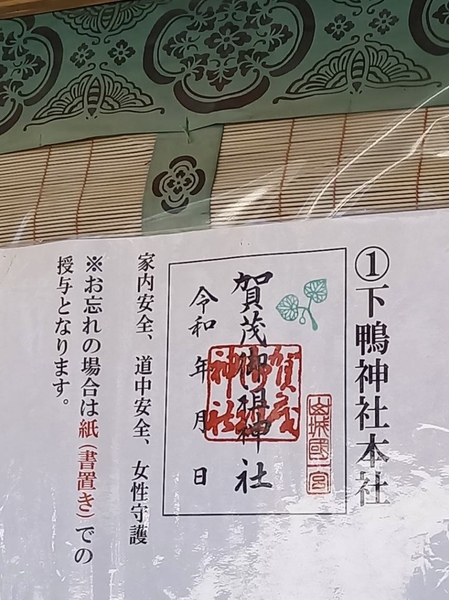 ①下鴨神社本社
山城國一宮
賀茂御祖神社
賀茂御祖神社
令和 年 月 日
家内安全、道中安全、女性守護
※お忘れの場合は紙(書置き)での
授与となります。